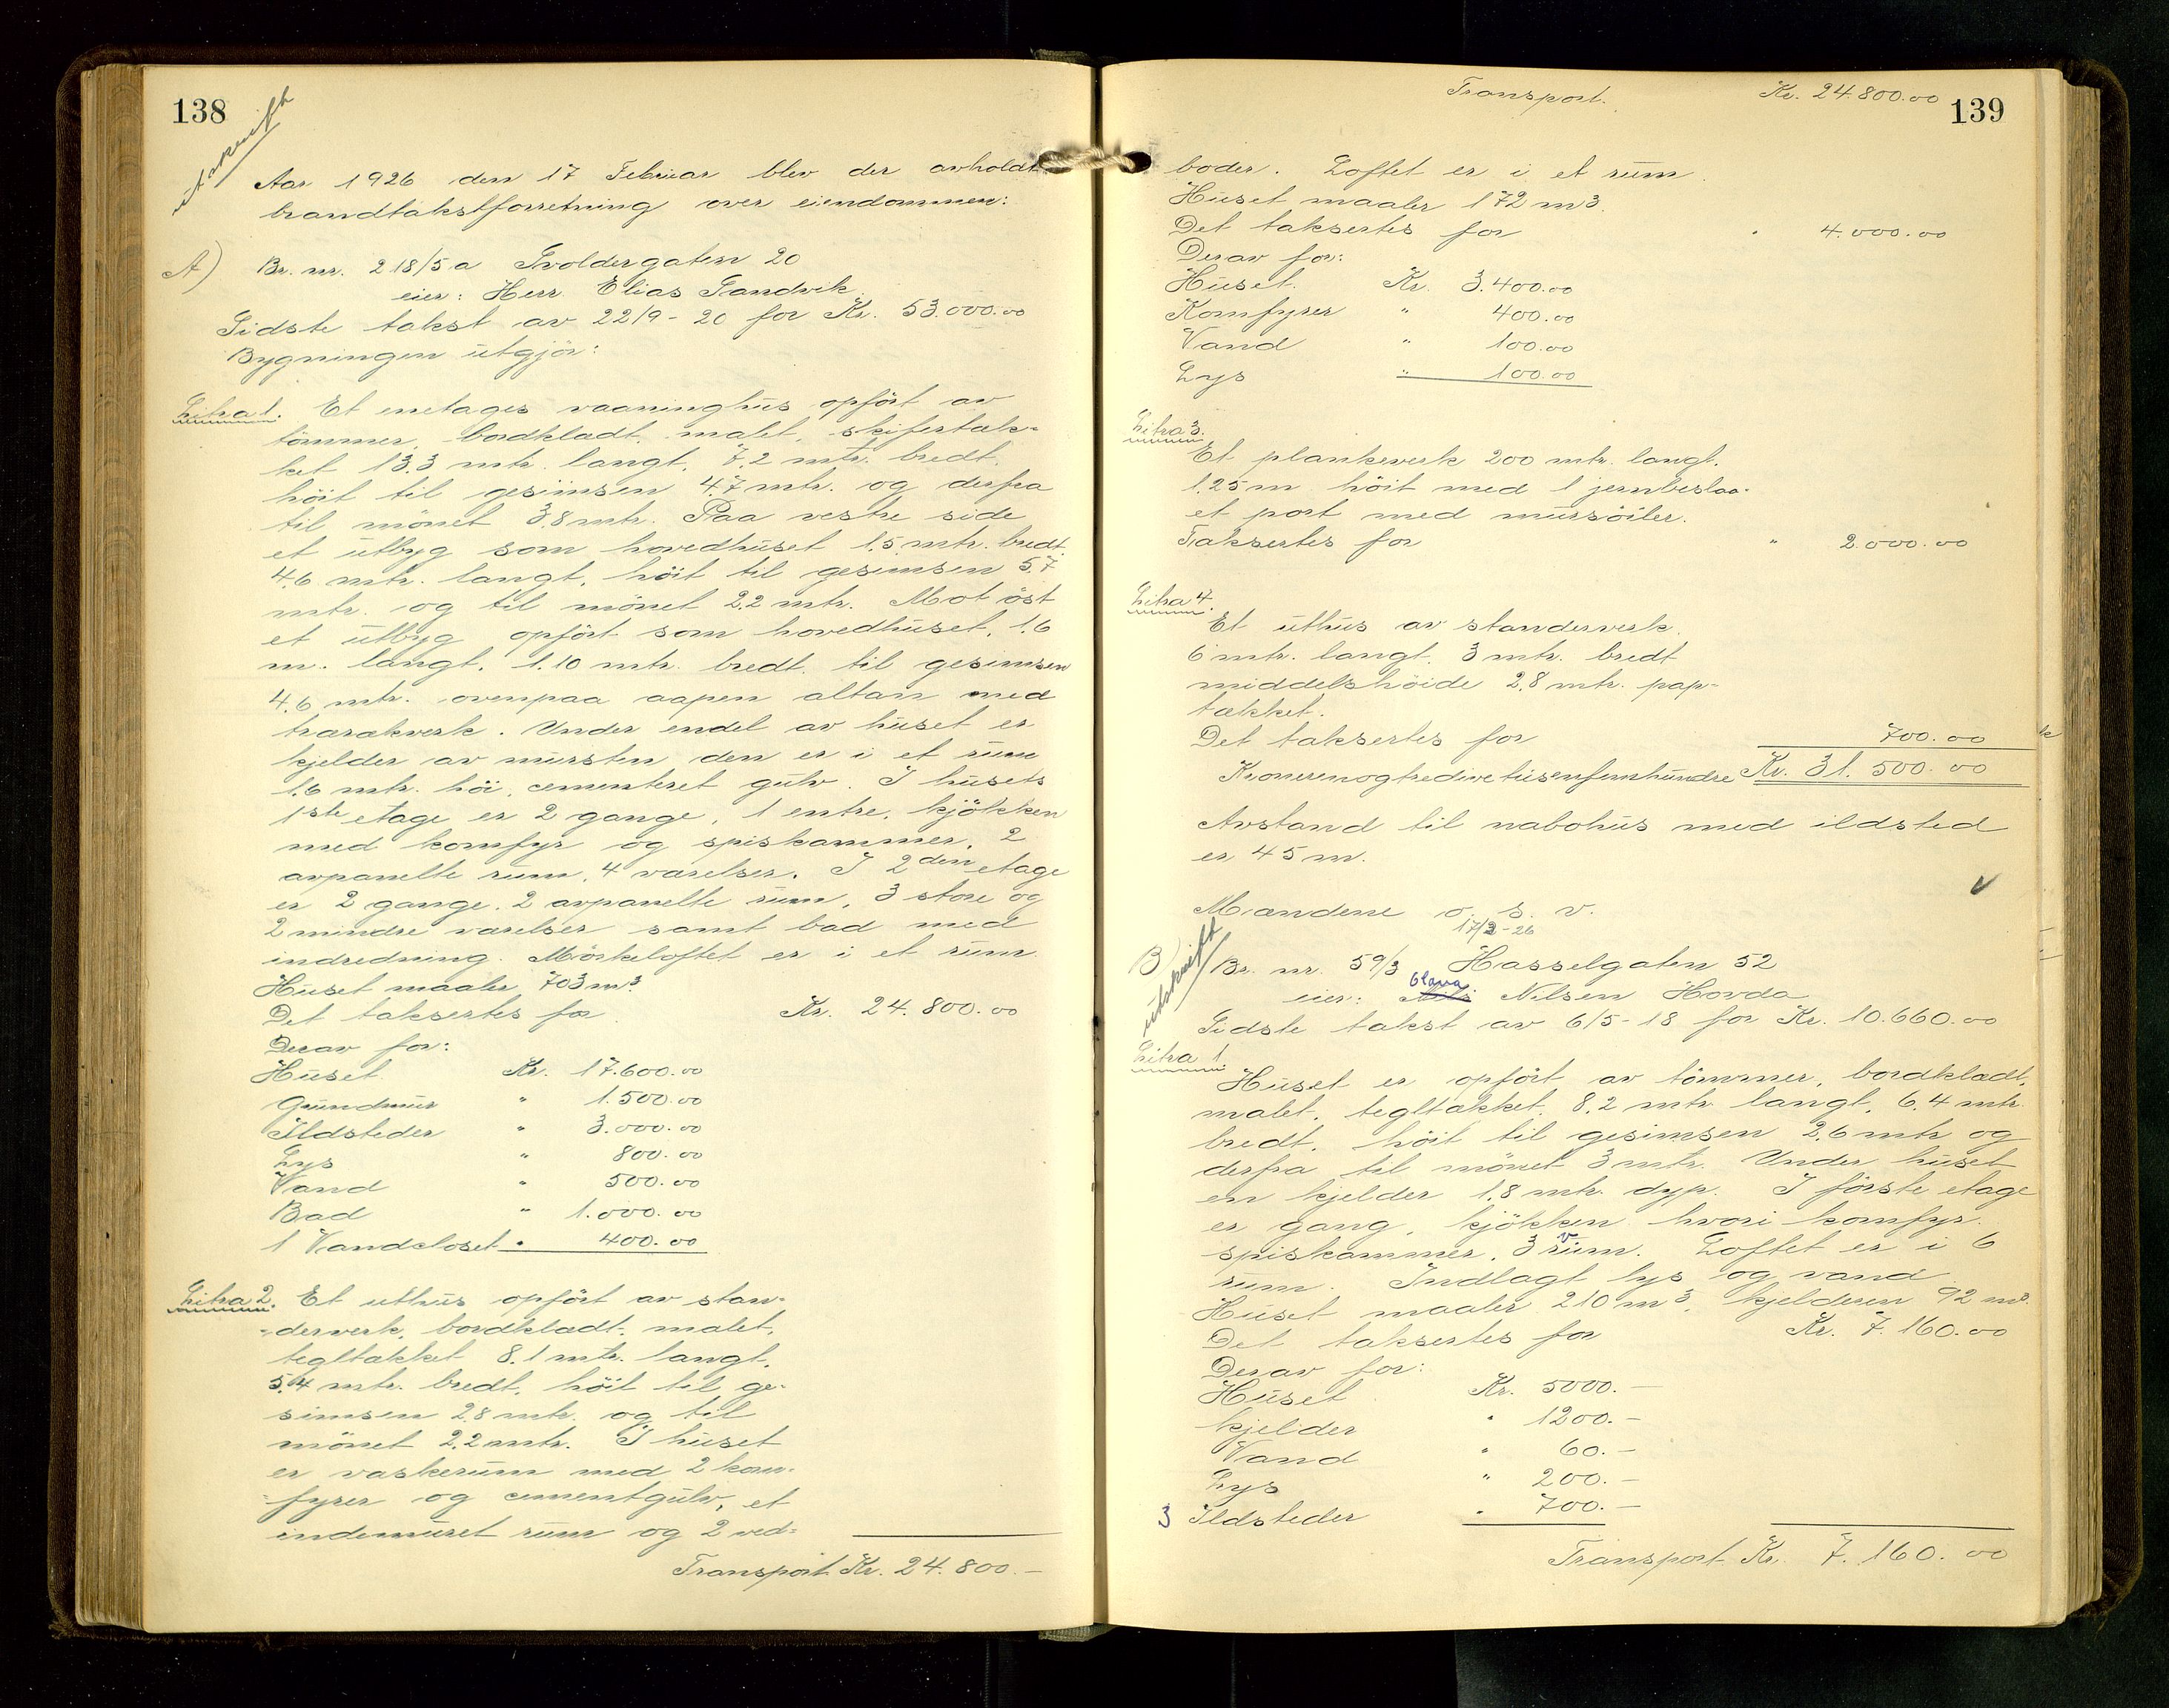 138
utskrift
Aar 1926 den 17 Februar blev der avholdt
brandtakstforretning over eiendommen:
A) Br. nr. 218/5a Svoldergaten 20
eier: Herr Elias Sandvik.
Sidste takst av 22/9-20 for Kr. 53.000.00
Bygningen utgjör:
Litra 1. Et enetages vaaninghus opfört av
tömmer, bordklædt, malet, skifertæk-
ket 13.3 mtr. langt, 7,2 mtr. bredt,
höit til gesimsen 4,7 mtr. og derfra
til mönet 3,8 mtr. Paa vestre side
et utbyg som hovedhuset 1,5 mtr. bredt
4,6 mtr. langt, höit til gesimsen 5,7
mtr. og til mönet 2,2 mtr. Mot öst
et utbyg opfört som hovedhuset, 1,6
m. langt, 1.10 mtr. bredt til gesimsen
4,6 mtr. ovenpaa aapen altan med
trærækverk. Under endel av huset er
kjelder av mursten den er i et rum
1,6 mtr. höi, cementeret gulv. I husets
1ste etage er 2 gange, 1 entre, kjökken
med komfyr og spiskammer, 2
avpanelte rum, 4 værelser. I 2den etage
er 2 gange, 2 avpanelte rum, 3 store og
2 mindre værelser samt bad med
indredning. Mörkeloftet er i et rum.
Huset maaler 703 m3.
Det taksertes for Kr. 24.800.00
Derav for:
Huset Kr. 17.600.00
Grundmur " 1.500.00
Ildsteder " 3.000.00
Lys " 800.00
Vand " 500.00
Bad " 1.000.00
1 Vandcloset " 400.00
Litra 2. Et uthus opfört av stan-
derverk, bordklædt, malet,
tegltækket 8.1 mtr. langt,
5,4 mtr. bredt, höit til ge-
simsen 2,8 mtr. og til
mönet 2,2 mtr. I huset
er vaskerum med 2 kom-
fyrer og cementgulv, et
indemuret rum og 2 ved-
Transport Kr. 24.800.-
Transport. Kr. 24.800.00
139
boder. Loftet er i et rum.
Huset maaler 172 m3.
Det taksertes for " 4.000.00
Derav for:
Huset Kr. 3.400.00
Komfyrer " 400.00
Vand " 100.00
Lys " 100.00
Litra 3.
Et plankeverk 200 mtr. langt,
1,25 m höit med 1 jernbeslaa-
et port med mursöiler.
Taksertes for " 2.000.00
Litra 4.
Et uthus av standerverk
6 mtr. langt, 3 mtr. bredt
middelshöide 2,8 mtr. pap-
tækket.
Det taksertes for 700.00
Kronerenogtredivetusenfemhundre Kr. 31.500.00
Avstand til nabohus med ildsted
er 45 m.
Mændene o. s. v.
17/2-26
utskrift
B Br. nr. 59/3 Hasselgaten 52
Olava
eier: Nils Nilsen Hovda
Sidste takst av 6/5-18 for Kr. 10.660.00
Litra 1.
Huset er opfört av tömmer, bordklædt,
malet, tegltækket, 8,2 mtr. langt, 6,4 mtr.
bredt, höit til gesimsen 2,6 mtr og
derfra til mönet 3 mtr. Under huset
en kjelder 1,8 mtr. dyp. I förste etage
er gang, kjökken hvori komfyr.
spiskammer, 3 rum. Loftet er i 6
rum. Indlagt lys og vand
Huset maaler 210 m3, kjelderen 92 m3.
Det taksertes for Kr. 7.160.00
Derav for:
Huset Kr. 5000.-
kjelder " 1200.-
Vand " 60.-
Lys " 200.-
3 Ildsteder " 700.-
Transport Kr. 7.160.00